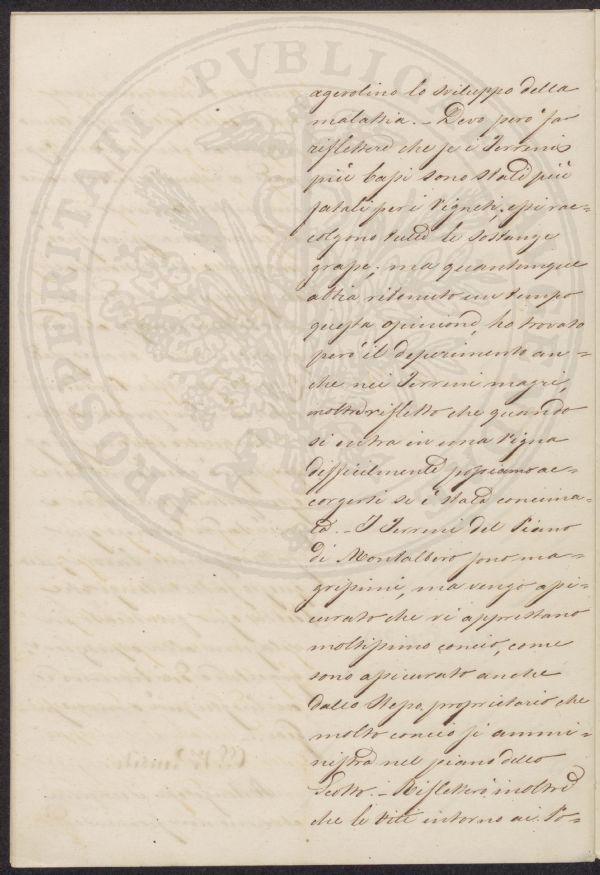 PROSPERITATI PVBLICAE
agevolino lo sviluppo della
malattia. - Devo però far
riflettere che se i Terreni
più bassi sono stati più
fatali per i Vigneti, essi rac-
colgono tutte le sostanze
grasse; ma quantunque
abbia ritenuto un tempo
questa opinione, ho trovato
però il deperimento an-
che nei Terreni magri,
inoltre rifletto che quando
si entra in una Vigna
difficilmente possiamo ac-
corgersi se è stata concima-
ta. - I Terreni del Piano
di Montalbero sono ma-
grissimi, ma vengo assi-
curato che vi apprestano
moltissimo concio, come
sono assicurato anche
dallo stesso proprietario che
molto concio si ammi-
nistra nel piano dello
Scotto. - Rifletterò inoltre
che le Viti intorno ai Po-